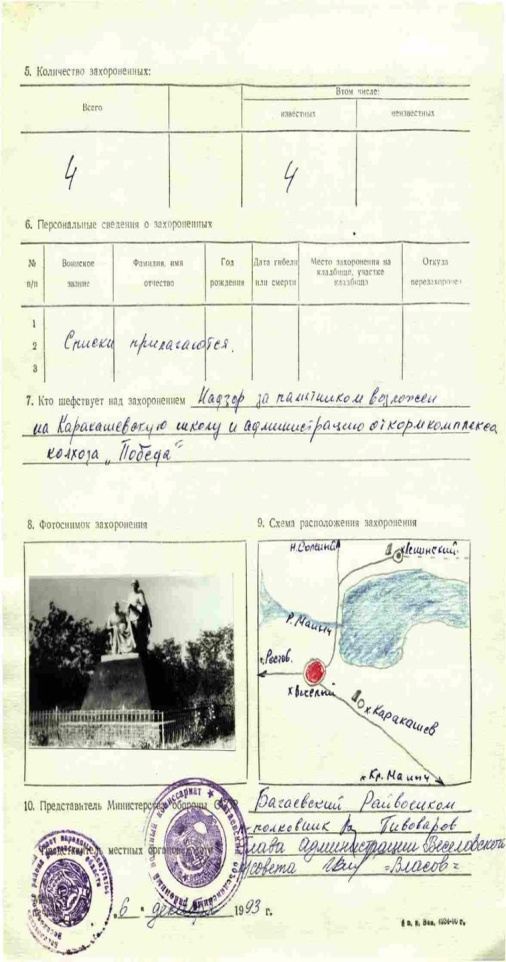 5. Количество захороненных:
Всего
В том числе:
известных
неизвестных
4
4
6. Персональные сведения о захороненных
№ п/п
Воинское звание
Фамилия, имя отчество
Год рождения
Дата гибели или смерти
Место захоронения на кладбище, участке кладбища
Откуда перезахоронен
1
2 Списки прилагаются.
3
7. Кто шефствует над захоронением Надзор за памятником возложен
на Каракашевскую школу и администрацию откормкомплекса
колхоза „Победа"
8. Фотоснимок захоронения
9. Схема расположения захоронения
р. Маныч
г. Ростов.
х Веселый
х Каракашев
к Кр. Маныч
10. Представитель Министерства обороны Багаевский Райвоенком
п-полковник Пивоваров
Представитель местных органов Глава Администрации Веселовского
с/совета =Власов=
„ 6 " декабря 1993 г.